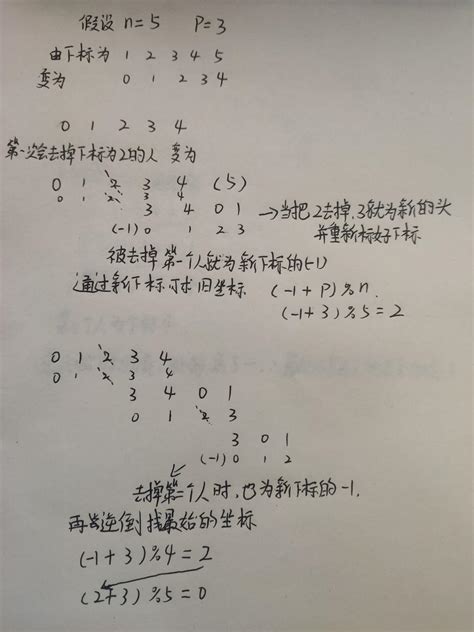 假设 n=5 P=3
由下标为 1 2 3 4 5
变为 0 1 2 3 4
0 1 2 3 4
第一次会去掉下标为2的人 变为
0 1 2 3 4 (5)
0 1 2 3 4
3 4 0 1 →当把2去掉,3就为新的头
(-1) 0 1 2 3 并重新标好下标
被去掉第一个人就为新下标的(-1)
通过新下标可求旧坐标 (-1+P)%n
(-1+3)%5=2
0 1 2 3 4
0 1 2 3 4
3 4 0 1
0 1 2 3
3 0 1
(-1) 0 1 2
去掉第二个人时,也为新下标的-1.
再逆倒找最始的坐标
(-1+3)%4=2
(2+3)%5=0